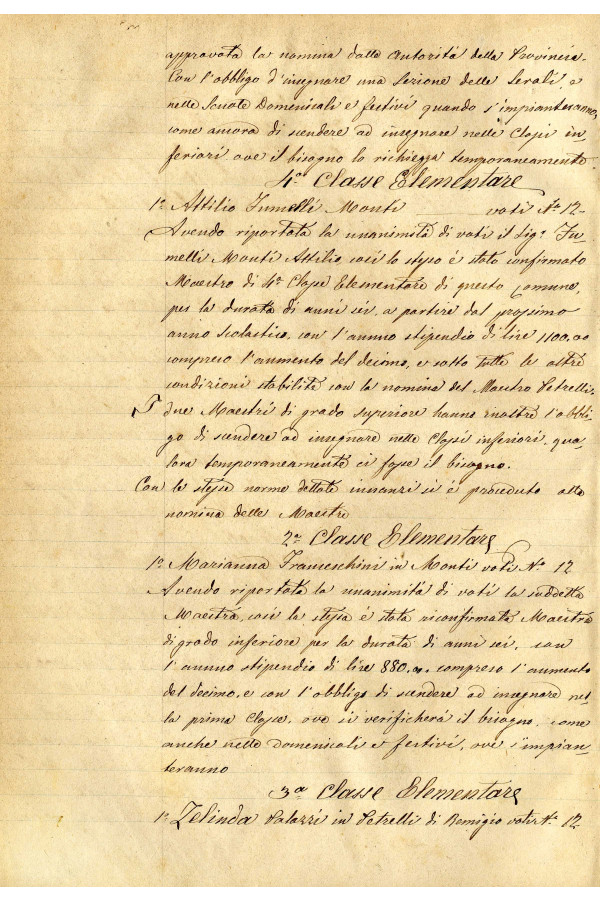 approvata la nomina dalle autorità della Provincia.
Con l'obbligo d'insegnare una sezione delle serali, e
nelle Scuole Domenicali e festivi quando s'impianteranno,
come ancora di scendere ad insegnare nelle Classi in-
feriori ove il bisogno lo richiegga temporaneamente
4a Classe Elementare
1o Attilio Fumelli Monti voti No 12-
Avendo riportata la unanimità di voti il Sigr Fu-
melli Monti Attilio così lo stesso è stato confirmato
Maestro di 4a Classe Elementare di questo Comune,
per la durata di anni sei, a partire dal prossimo
anno scolastico, con l'annuo stipendio di lire 1100,00
compreso l'aumento del decimo, e sotto tutte le altre
condizioni stabilite con la nomina del Maestro Petrelli.
I due Maestri di grado superiore hanno inoltre l'obbli-
go di scendere ad insegnare nelle Classi inferiori, qua-
lora temporaneamente ci fosse il bisogno.
Con le stesse norme dettate innanzi si è proceduto alla
nomina delle Maestre
2a Classe Elementare
1o Marianna Franceschini in Monti voti No 12
Avendo riportata la unanimità di voti la suddetta
Maestra, così la stessa è stata riconfirmata Maestra
di grado inferiore per la durata di anni sei, con
l'annuo stipendio di lire 880,00, compreso l'aumento
del decimo, e con l'obbligo di scendere ad insegnare nel-
la prima Classe, ove si verificherà il bisogno, come
anche nelle domenicali e festivi, ove s'impian-
teranno
3a Classe Elementare
1o Zelinda Palazzi in Petrelli di Remigio voti No 12-